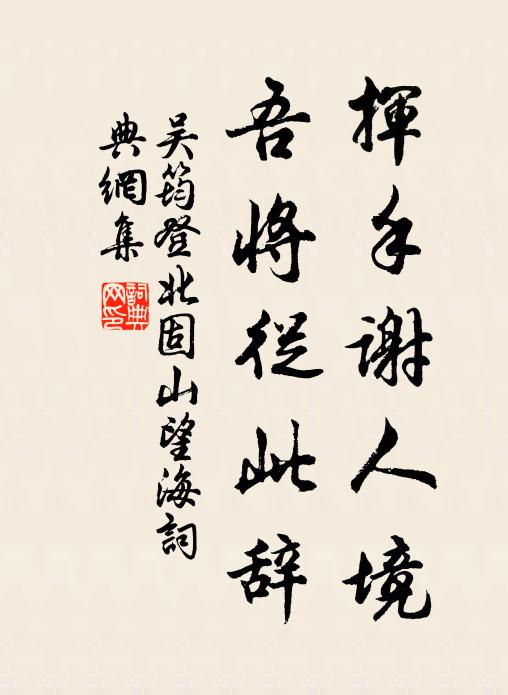 揮手謝人境
吾將從此辞
吳筠登北固山望海詞
典網集
詞典
网印